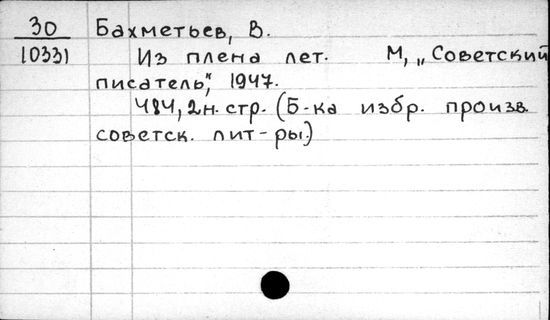 30
10331
Бахметьев, В.
Из плена лет. М, „Советский
писатель", 1947.
484, 2 н. стр. (Б-ка избр. произв.
советск. лит-ры.)